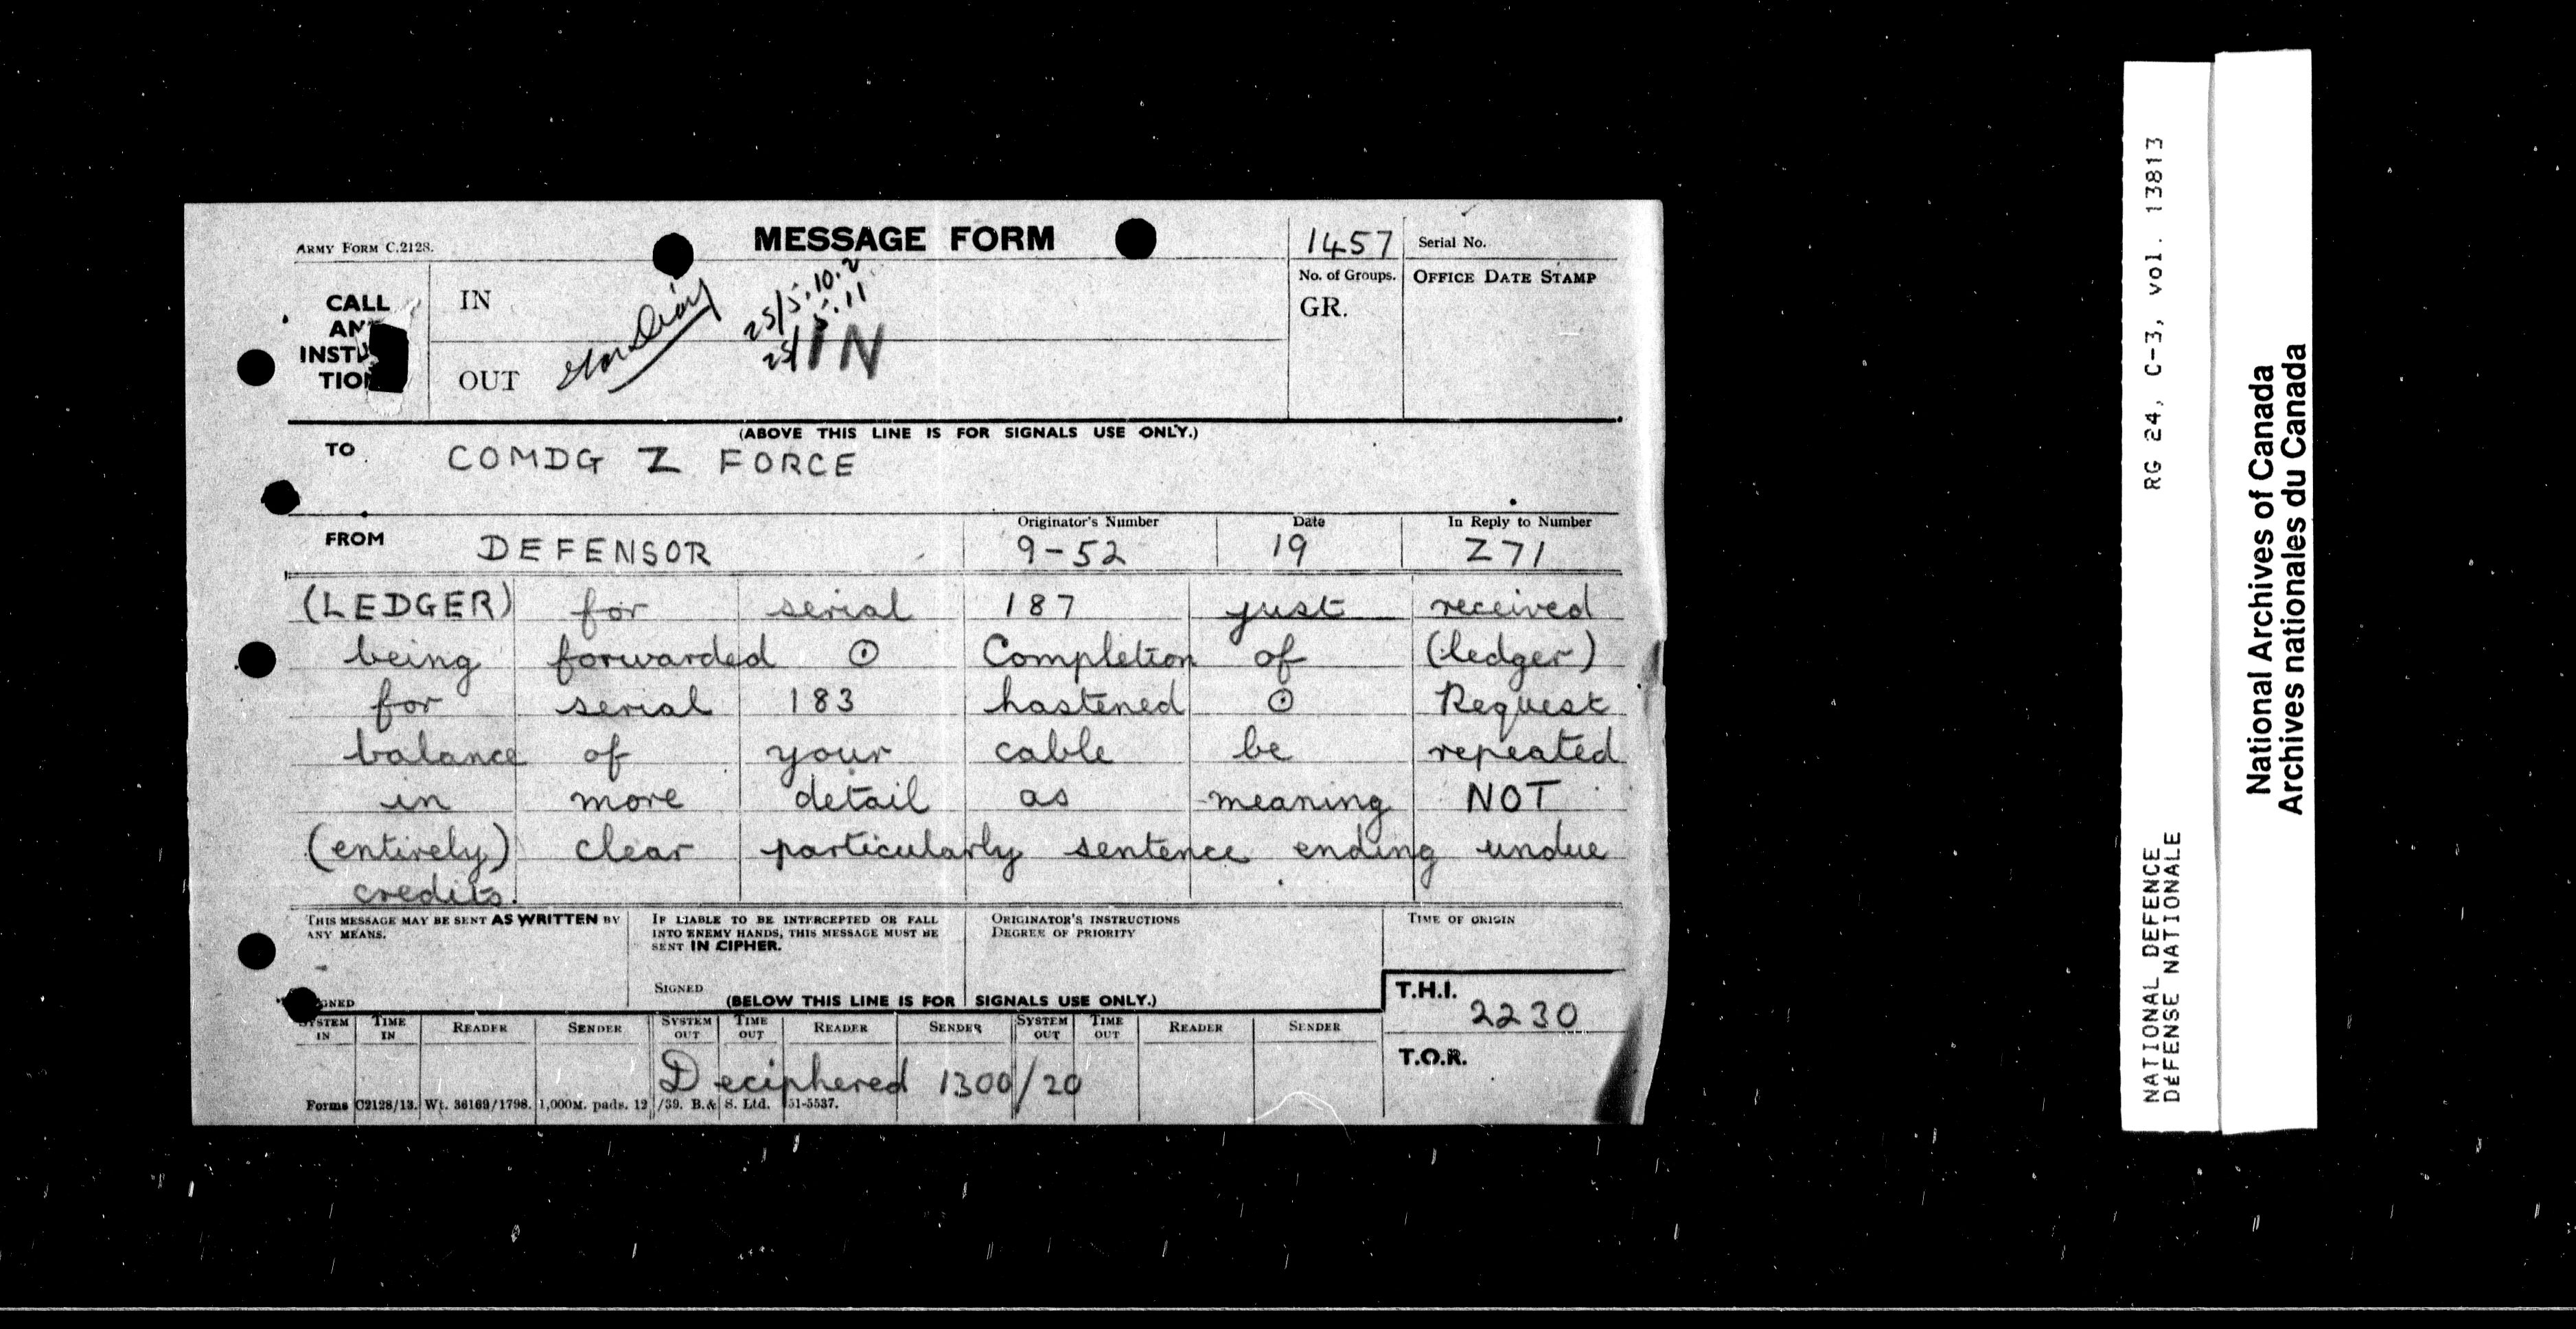 ARMY FORM C.2128.
MESSAGE FORM
1457
Serial No.
No. of Groups.
OFFICE DATE STAMP
GR.
CALL
IN
OUT
25/5.10.2
25/5.11
IN
(ABOVE THIS LINE IS FOR SIGNALS USE ONLY.)
TO
COMDG Z FORCE
FROM
DEFENSOR
Originator's Number
9-52
Date
19
In Reply to Number
Z71
(LEDGER) for serial 187 just received
being forwarded ⊙ Completion of (ledger)
for serial 183 hastened ⊙ Request
balance of your cable be repeated
in more detail as meaning NOT
(entirely) clear particularly sentence ending undue
credits.
THIS MESSAGE MAY BE SENT AS WRITTEN BY
ANY MEANS.
IF LIABLE TO BE INTERCEPTED OR FALL
INTO ENEMY HANDS, THIS MESSAGE MUST BE
SENT IN CIPHER.
SIGNED
ORIGINATOR'S INSTRUCTIONS
DEGREE OF PRIORITY
TIME OF ORIGIN
(BELOW THIS LINE IS FOR SIGNALS USE ONLY.)
T.H.I.
2230
T.O.R.
SYSTEM IN
TIME IN
READER
SENDER
SYSTEM OUT
TIME OUT
READER
SENDER
SYSTEM OUT
TIME OUT
READER
SENDER
Deciphered 1300/20
Forms C2128/13. Wt. 36169/1798. 1,000M. pads. 12/39. B.& S. Ltd. 51-5537.
RG 24, C-3, vol. 13813
NATIONAL DEFENCE
DÉFENSE NATIONALE
National Archives of Canada
Archives nationales du Canada